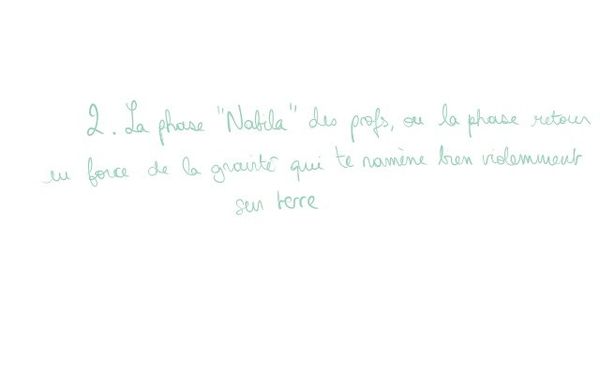 2. La phase "Nabila" des profs, ou la phase retour
en force de la gravité qui te ramène bien violemment
sur terre